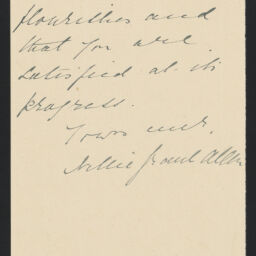 flourishes and
that you are
satisfied at its
progress.
Yours ever,
Nellie Grant